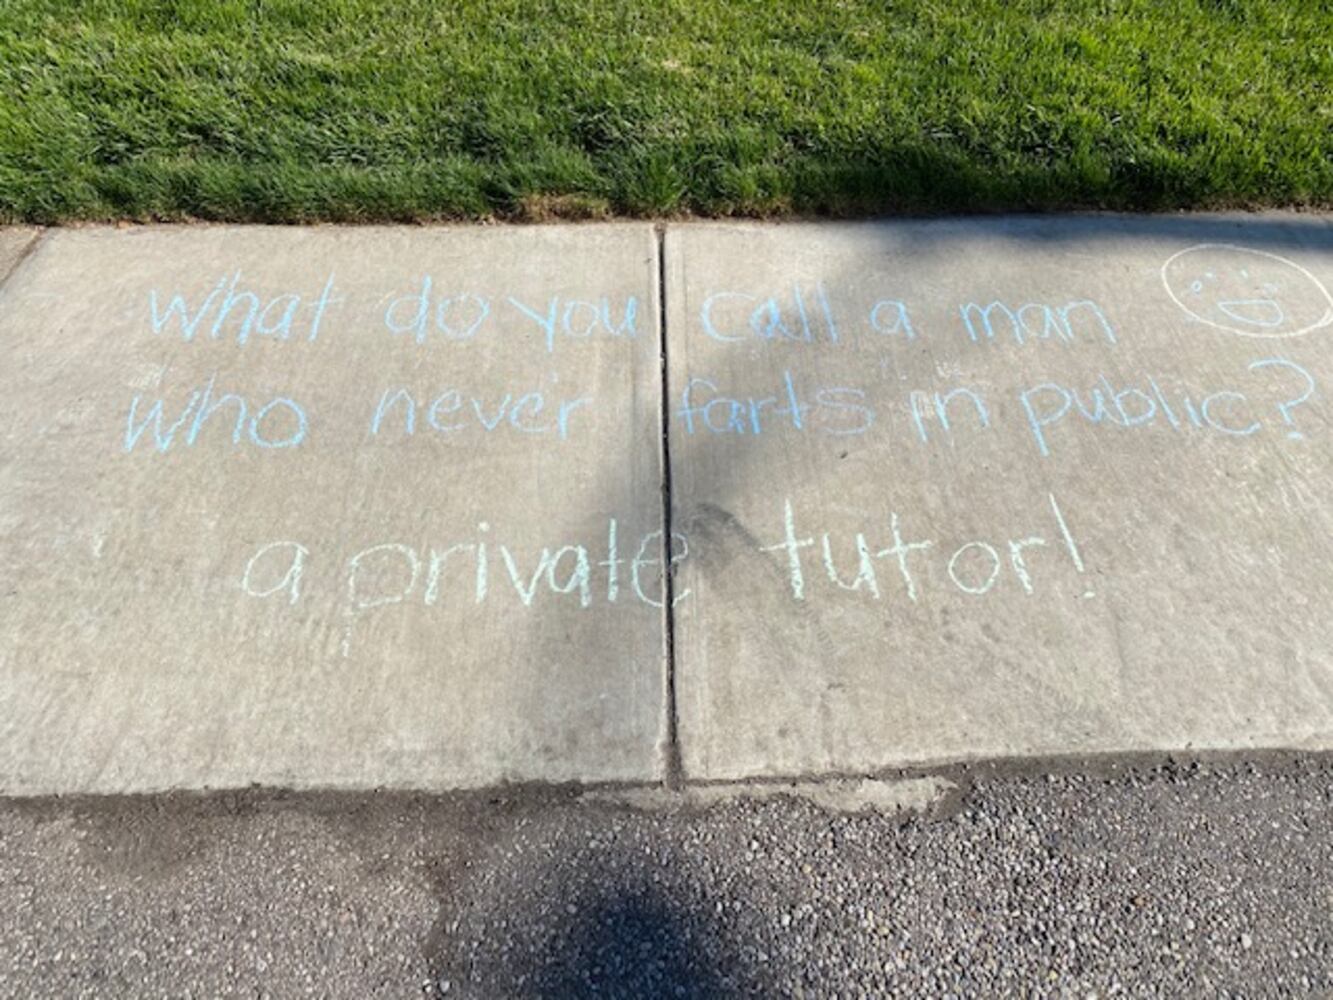 What do you call a man
who never farts in public?
a private tutor!